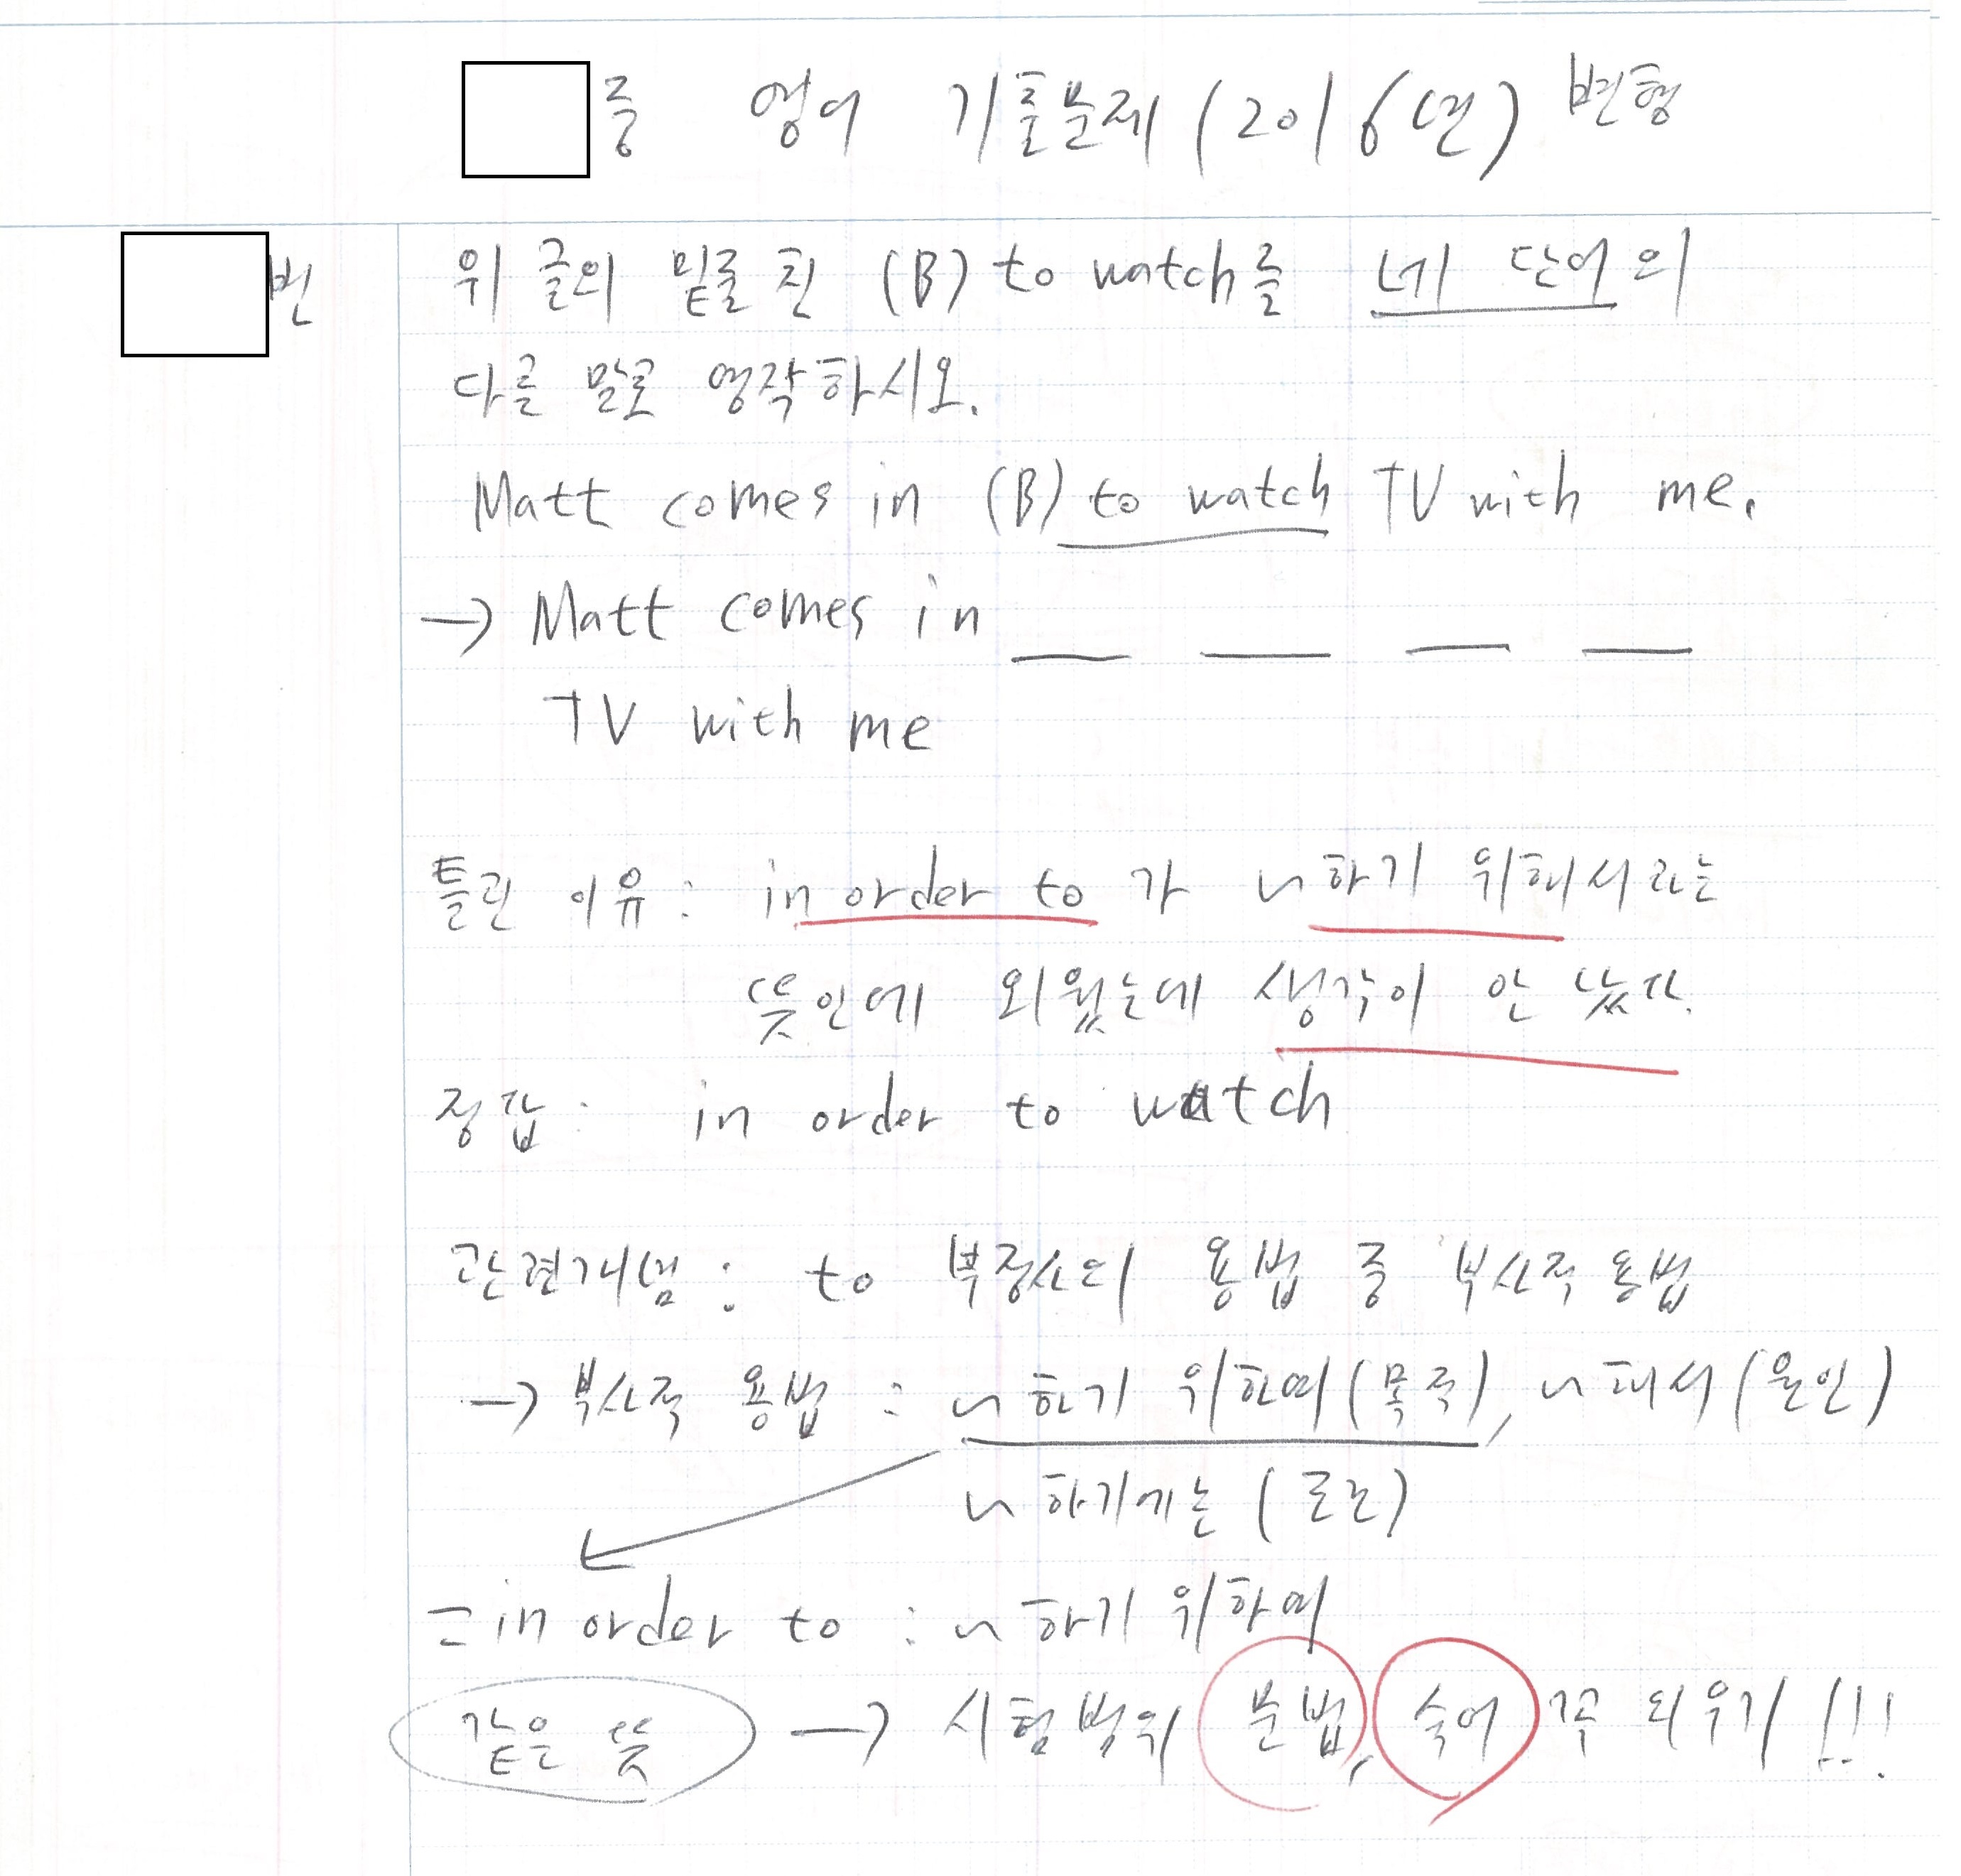 중 영어 기출문제(2016년) 변형
번 위 글의 밑줄 친 (B) to watch를 네 단어의
다른 말로 영작하시오.
Matt comes in (B) to watch TV with me.
→ Matt comes in __ __ __ __
TV with me
틀린 이유 : in order to 가 ~하기 위해서라는
뜻인데 외웠는데 생각이 안 났다.
정답 : in order to watch
관련개념 : to 부정사의 용법 중 부사적 용법
→ 부사적 용법 : ~하기 위하여(목적), ~해서(원인)
~하기에는(조건)
= in order to : ~하기 위하여
같은 뜻 → 시험범위 문법, 숙어 꼭 외우기!!!